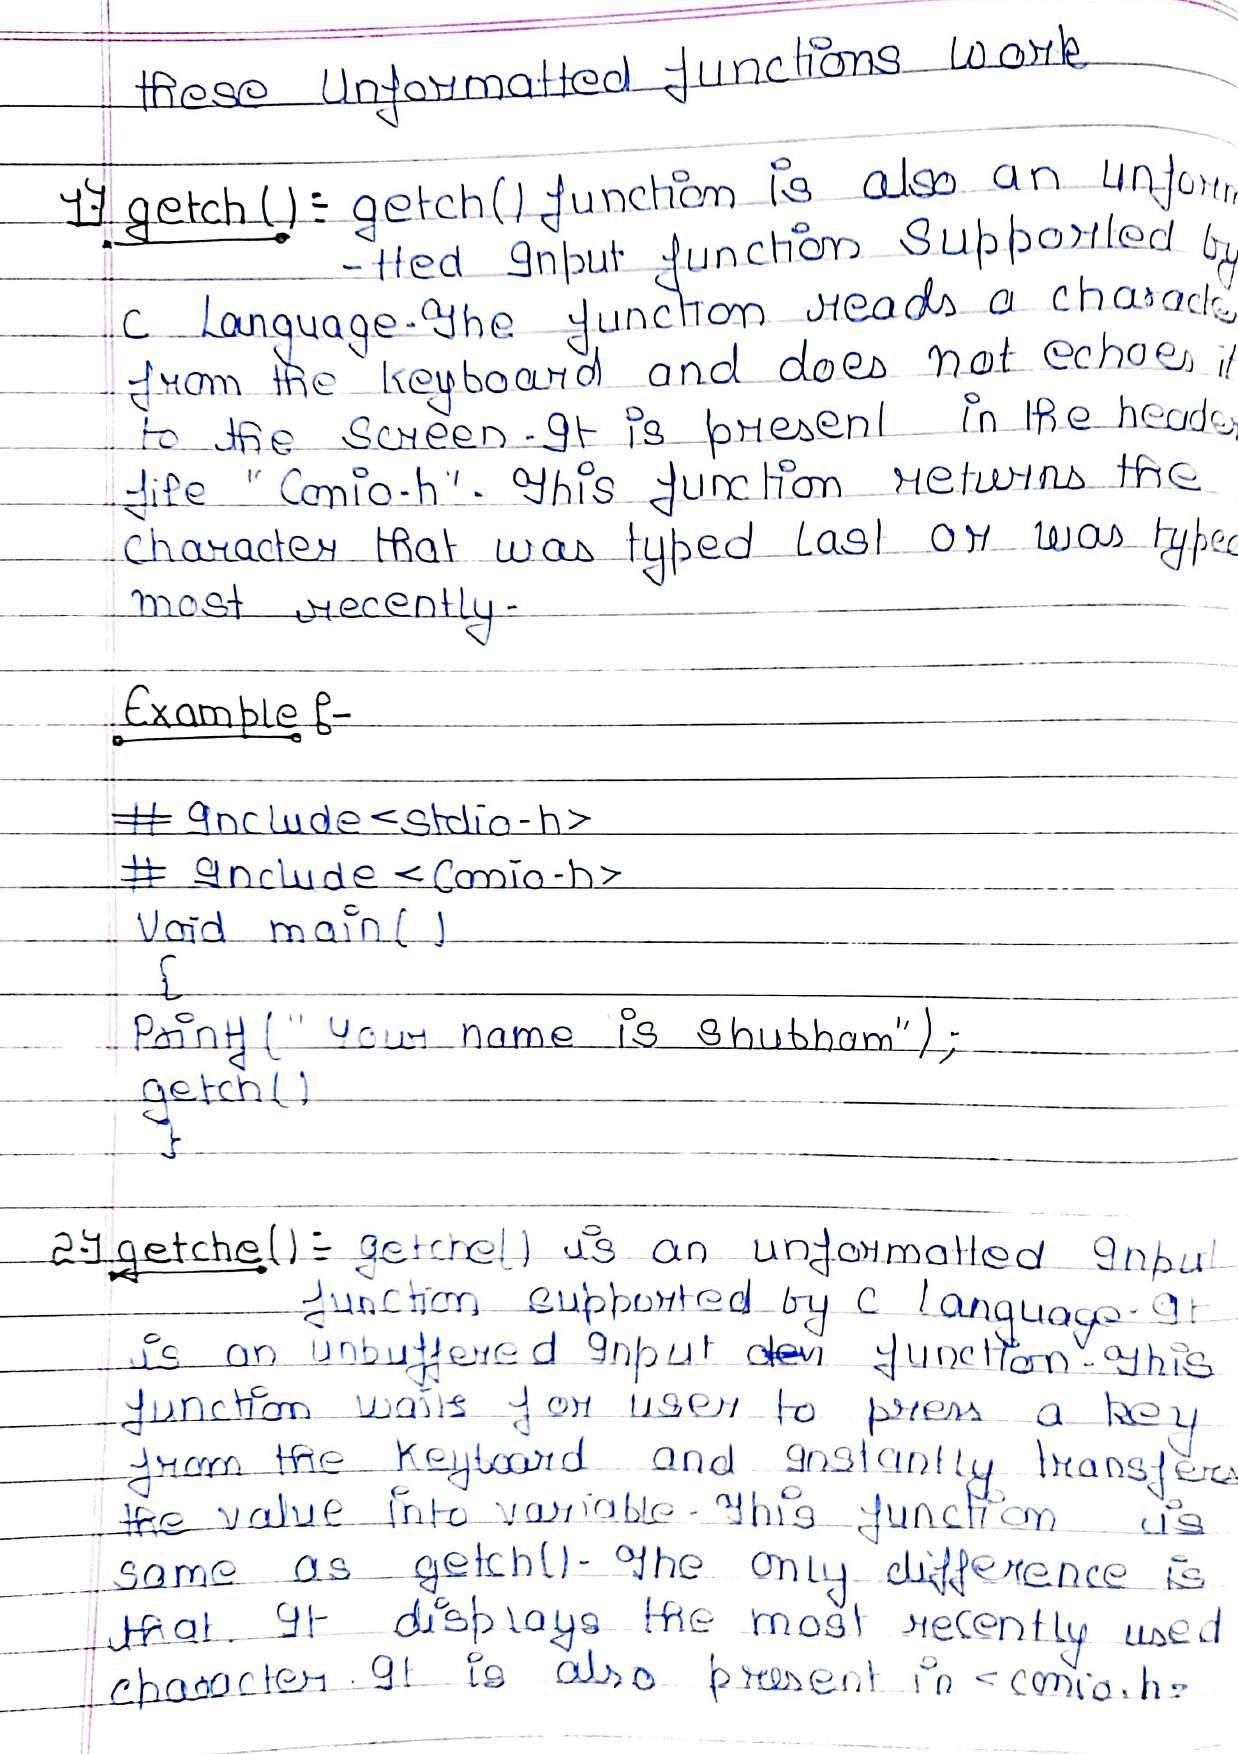 these Unformatted functions work
1) getch() = getch() function is also an unform
-tted Input function Supported by
C Language. The function reads a characte
from the keyboard and does not echoes it
to the screen. It is present in the header
file "Conio.h". This function returns the
character that was typed last or was typed
most recently.
Example :-
# Include <stdio.h>
# Include <Conio.h>
Void main()
{
Printf ("Your name is Shubham");
getch()
}
2) getche() = getche() is an unformatted Input
function supported by C language. It
is an unbuffered Input function. This
function waits for user to press a key
from the Keyboard and Instantly transfers
the value into variable. This function is
same as getch(). The only difference is
that. It displays the most recently used
character. It is also present in <conio.h>